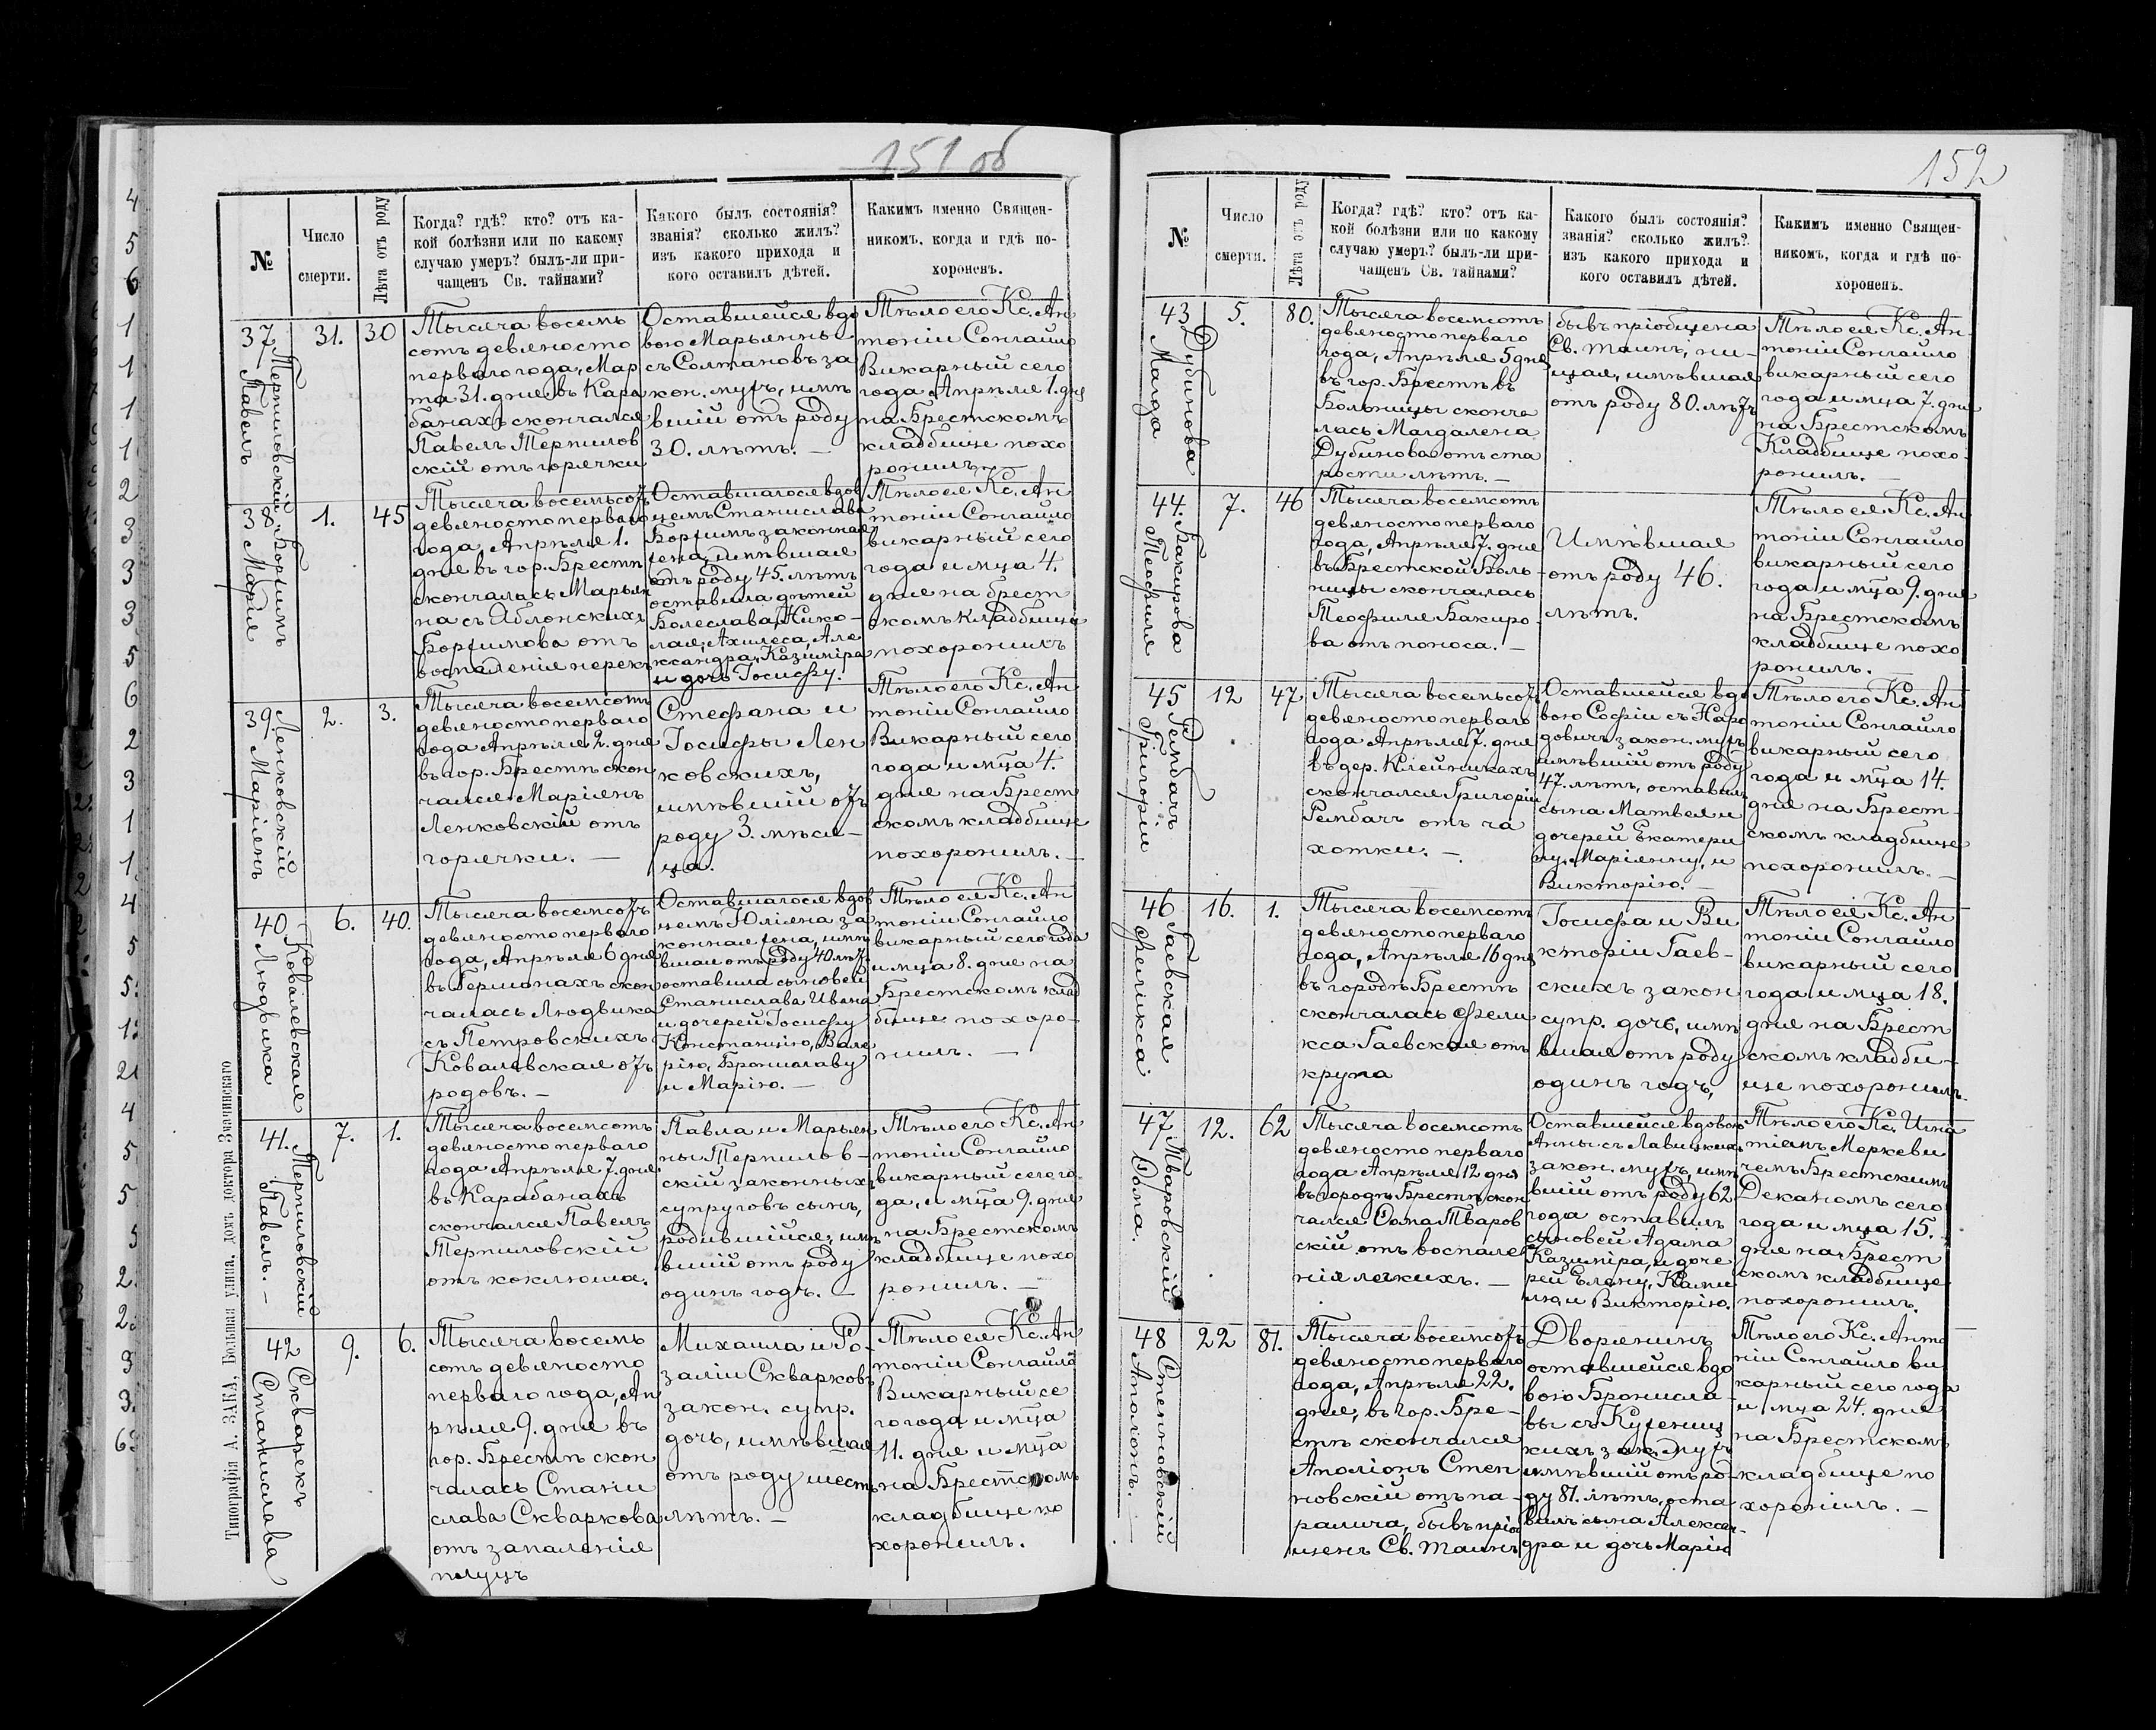 151 об
№
Число
смерти.
Лѣта отъ роду
Когда? гдѣ? кто? отъ ка-
кой болѣзни или по какому
случаю умеръ? былъ-ли при-
чащенъ Св. тайнами?
Какого былъ состоянія?
званія? сколько жилъ?
изъ какого прихода и
кого оставилъ дѣтей.
Какимъ именно Священ-
никомъ, когда и гдѣ по-
хороненъ.
37
Терпиловскій
Павелъ
31.
30
Тысяча восемь
сотъ девяносто
перваго года, Мар
та 31. дня въ Кара
банахъ скончался
Павелъ Терпилов
скій отъ горячки
Оставшейся вдо
вою Марьянны
съ Солтановъ за
кон. мужъ, имѣ
вшій отъ роду
30. лѣтъ. —
Тѣло его Кс. Ан
тоній Сонгайло
Викарный сего
года Апрѣля 1. дня
на Брестскомъ
кладбище похо
ронилъ. —
38
Боржимъ
Марія
1.
45
Тысяча восемьсотъ
девяносто перваго
года, Апрѣля 1.
дня въ гор. Брестѣ
скончалась Марьян
на съ Яблонскихъ
Боржимова отъ
воспаленія
Оставшагося вдов
цемъ Станислава
Боржимъ законная
жена, имѣвшая
отъ роду 45. лѣтъ
оставила дѣтей
Болеслава, Нико-
лая, Ахилеса, Але
ксандра, Казиміра
и дочь Іосифу.
Тѣло ея Кс. Ан
тоній Сонгайло
викарный сего
года и мца 4.
дня на брест
скомъ Кладбище
похоронилъ
39
Ленковскій
Маріянъ
2.
3.
Тысяча восемсотъ
девяносто перваго
года Апрѣля 2. дня
въ гор. Брестѣ скон
чался Маріянъ
Ленковскій отъ
горячки. —
Стефана и
Іосифы Лен
ковскихъ,
имѣвшій отъ
роду 3. мѣся-
ца.
Тѣло его Кс. Ан
тоній Сонгайло
Викарный сего
года и мца 4.
дня на Брест
скомъ кладбище
похоронилъ. —
40
Ковалевская
Людвика
6.
40.
Тысяча восемсотъ
девяносто перваго
года, Апрѣля 6 дня
въ Гершонахъ скон
чалась Людвика
съ Петровскихъ
Ковалевская отъ
родовъ. —
Оставшагося вдов
цемъ Юліяна за
конная жена, имѣ
вшая отъ роду 40 лѣтъ.
оставила сыновей
Станислава Ивана
и дочерей Іосифу
Констанцію, Вале
рію, Брониславу
и Марію. —
Тѣло ея Кс. Ан
тоній Сонгайло
викарный сего года
и мца 8. дня на
Брестскомъ клад
бище похоро-
нилъ. —
41.
Терпиловскій
Павелъ. —
7.
1.
Тысяча восемсотъ
девяносто перваго
года Апрѣля 7. дня
въ Карабанахъ
скончался Павелъ
Терпиловскій
отъ коклюша.
Павла и Марьян
ны Терпилов-
скій законныхъ
супруговъ сынъ,
родившійся, имѣ
вшій отъ роду
одинъ годъ. —
Тѣло его Кс. Ан
тоній Сонгайло
викарный сего го-
да, и мца 9. дня
на Брестскомъ
кладбище похо
ронилъ. —
42
Скварекъ
Станислава
9.
6.
Тысяча восемь
сотъ девяносто
перваго года, Ап
рѣля 9. дня въ
гор. Брестѣ скон
чалась Стани
слава Скваркова
отъ запаленія
Михаила и Ро-
заліи Скварковъ
закон. супр.
дочь, имѣвшая
отъ роду шесть
лѣтъ. —
Тѣло ея Кс. Ан
тоній Сонгайло
Викарный се
го года и мца
11. дня и мца
на Брестскомъ
кладбище по
хоронилъ.
Типографія А. ЗАКА, Большая улица, домъ доктора Значинскаго
152
№
Число
смерти.
Лѣта отъ роду
Когда? гдѣ? кто? отъ ка-
кой болѣзни или по какому
случаю умеръ? былъ-ли при-
чащенъ Св. тайнами?
Какого былъ состоянія?
званія? сколько жилъ?
изъ какого прихода и
кого оставилъ дѣтей.
Какимъ именно Священ-
никомъ, когда и гдѣ по-
хороненъ.
43
Дубинова
Магда
5.
80.
Тысяча восемсотъ
девяносто перваго
года, Апрѣля 5 дня
въ гор. Брестѣ въ
Больницы сконча
лась Магдалена
Дубинова отъ ста
рости лѣтъ. —
бывъ пріобщена
Св. таинъ, ни-
щая, имѣвшая
отъ роду 80. лѣтъ
Тѣло ея Кс. Ан
тоній Сонгайло
викарный сего
года и мца 7. дня
на Брестскомъ
Кладбище похо-
ронилъ. —
44.
Бакирова
Теофиля
7.
46
Тысяча восемсотъ
девяносто перваго
года, Апрѣля 7. дня
въ Брестской Боль-
ницы скончалась
Теофиля Бакиро-
ва отъ поноса. —
Имѣвшая
отъ роду 46.
лѣтъ.
Тѣло ея Кс. Ан
тоній Сонгайло
викарный сего
года и мца 9. дня
на Брестскомъ
кладбище похо
ронилъ.
45
Рембачъ
Григорій
12
47
Тысяча восемьсотъ
девяносто перваго
года Апрѣля 7. дня
въ дер. Клейникахъ
скончался Григорій
Рембачъ отъ ча
хотки. —
Оставшейся вдо
вою Софіи съ Наро
довичъ закон. мужъ
имѣвшій отъ роду
47. лѣтъ, оставилъ
сына Матвея и
дочерей Екатери
ну, Маріянну, и
Викторію. —
Тѣло его Кс. Ан
тоній Сонгайло
викарный сего
года и мца 14.
дня на Брест-
скомъ кладбище
похоронилъ. —
46
Гаевская
Фелікса.
16.
1.
Тысяча восемсотъ
девяносто перваго
года, Апрѣля 16 дня
въ городѣ Брестѣ
скончалась Фели
кса Гаевская отъ
крупа
Іосифа и Ви
кторіи Гаев-
скихъ закон
супр. дочь, имѣ
вшая отъ роду
одинъ годъ,
Тѣло ея Кс. Ан
тоній Сонгайло
викарный сего
года и мца 18.
дня на Брест
скомъ кладби-
ще похоронилъ.
47
Тваровскій
Ѳома.
12.
62
Тысяча восемсотъ
девяносто перваго
года Апрѣля 12 дня
въ городѣ Брестѣ скон
чался Ѳома Тваров
скій отъ воспале
нія легкихъ. —
Оставшейся вдовою
Анны съ Лавицкихъ
закон. мужъ, имѣ
вшій отъ роду 62
года оставилъ
сыновей Адама
Казиміра, и доче
рей Елену, Ками
лю, и Викторію.
Тѣло его Кс. Игна
тіемъ Меркеви
чемъ Брестскимъ
Деканомъ сего
года и мца 15.
дня на Брест
скомъ кладбище
похоронилъ.
48
Стенновскій
Аполонъ. —
22
81.
Тысяча восемсотъ
девяносто перваго
года, Апрѣля 22.
дня, въ гор. Бре-
стѣ скончался
Аполіонъ Стен
новскій отъ па-
ралича, бывъ пріоб
щенъ Св. таинъ
Дворянинъ
оставшейся вдо
вою Брониcла-
вы съ
кихъ зак. мужъ
имѣвшій отъ ро-
ду 81. лѣтъ, оста
вилъ сына Алексан-
дра и дочь Марію
Тѣло его Кс. Анто
ній Сонгайло ви
карный сего года
и мца 24. дня
на Брестскомъ
кладбище по
хоронилъ. —